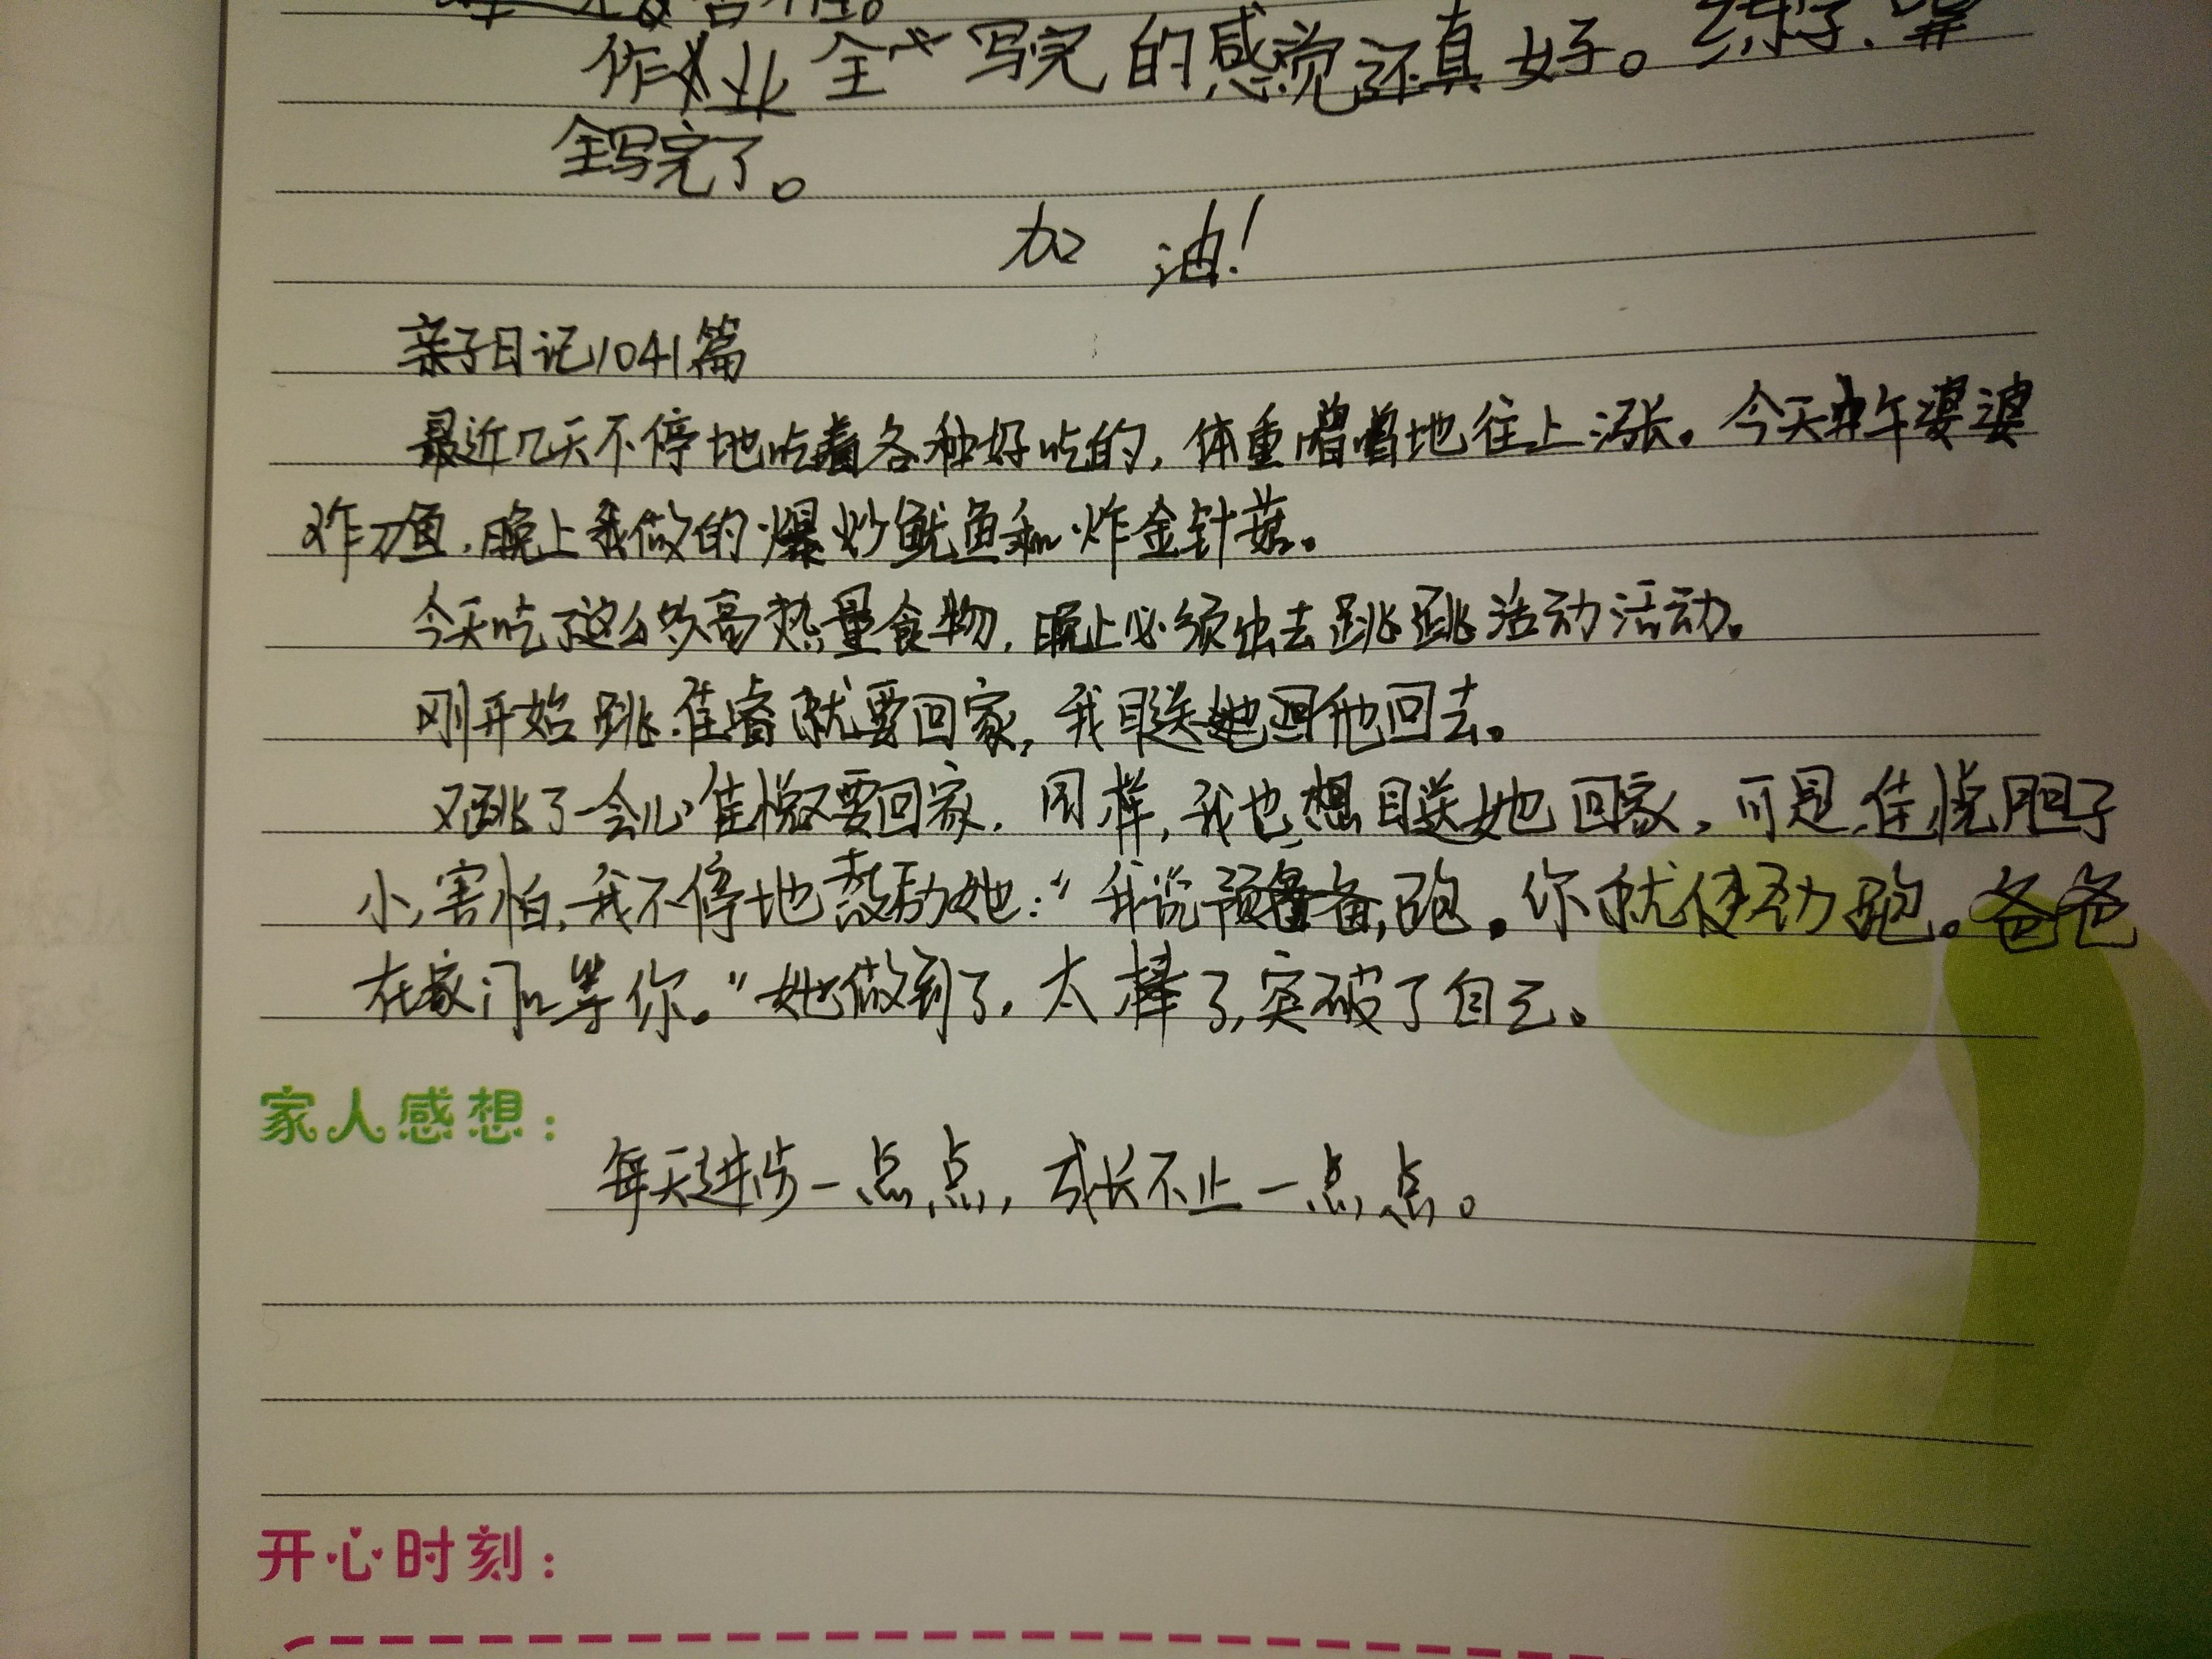 作业全部写完的感觉还真好。练字、算
全写完了。
加 油！
亲子日记1041篇
最近几天不停地吃着各种好吃的，体重噌噌地往上涨。今天中午婆婆
炸刀鱼，晚上我做的爆炒鱿鱼和炸金针菇。
今天吃了这么多高热量食物，晚上必须出去跳跳活动活动。
刚开始跳佳睿就要回家，我目送他回去。
又跳了一会儿佳悦又要回家，同样，我也想目送她回家，可是佳悦胆子
小，害怕，我不停地鼓励她：“我说预备，跑。你就使劲跑。爸爸
在家门口等你。”她做到了，太棒了，突破了自己。
家人感想：
每天进步一点点，成长不止一点点。
开心时刻：